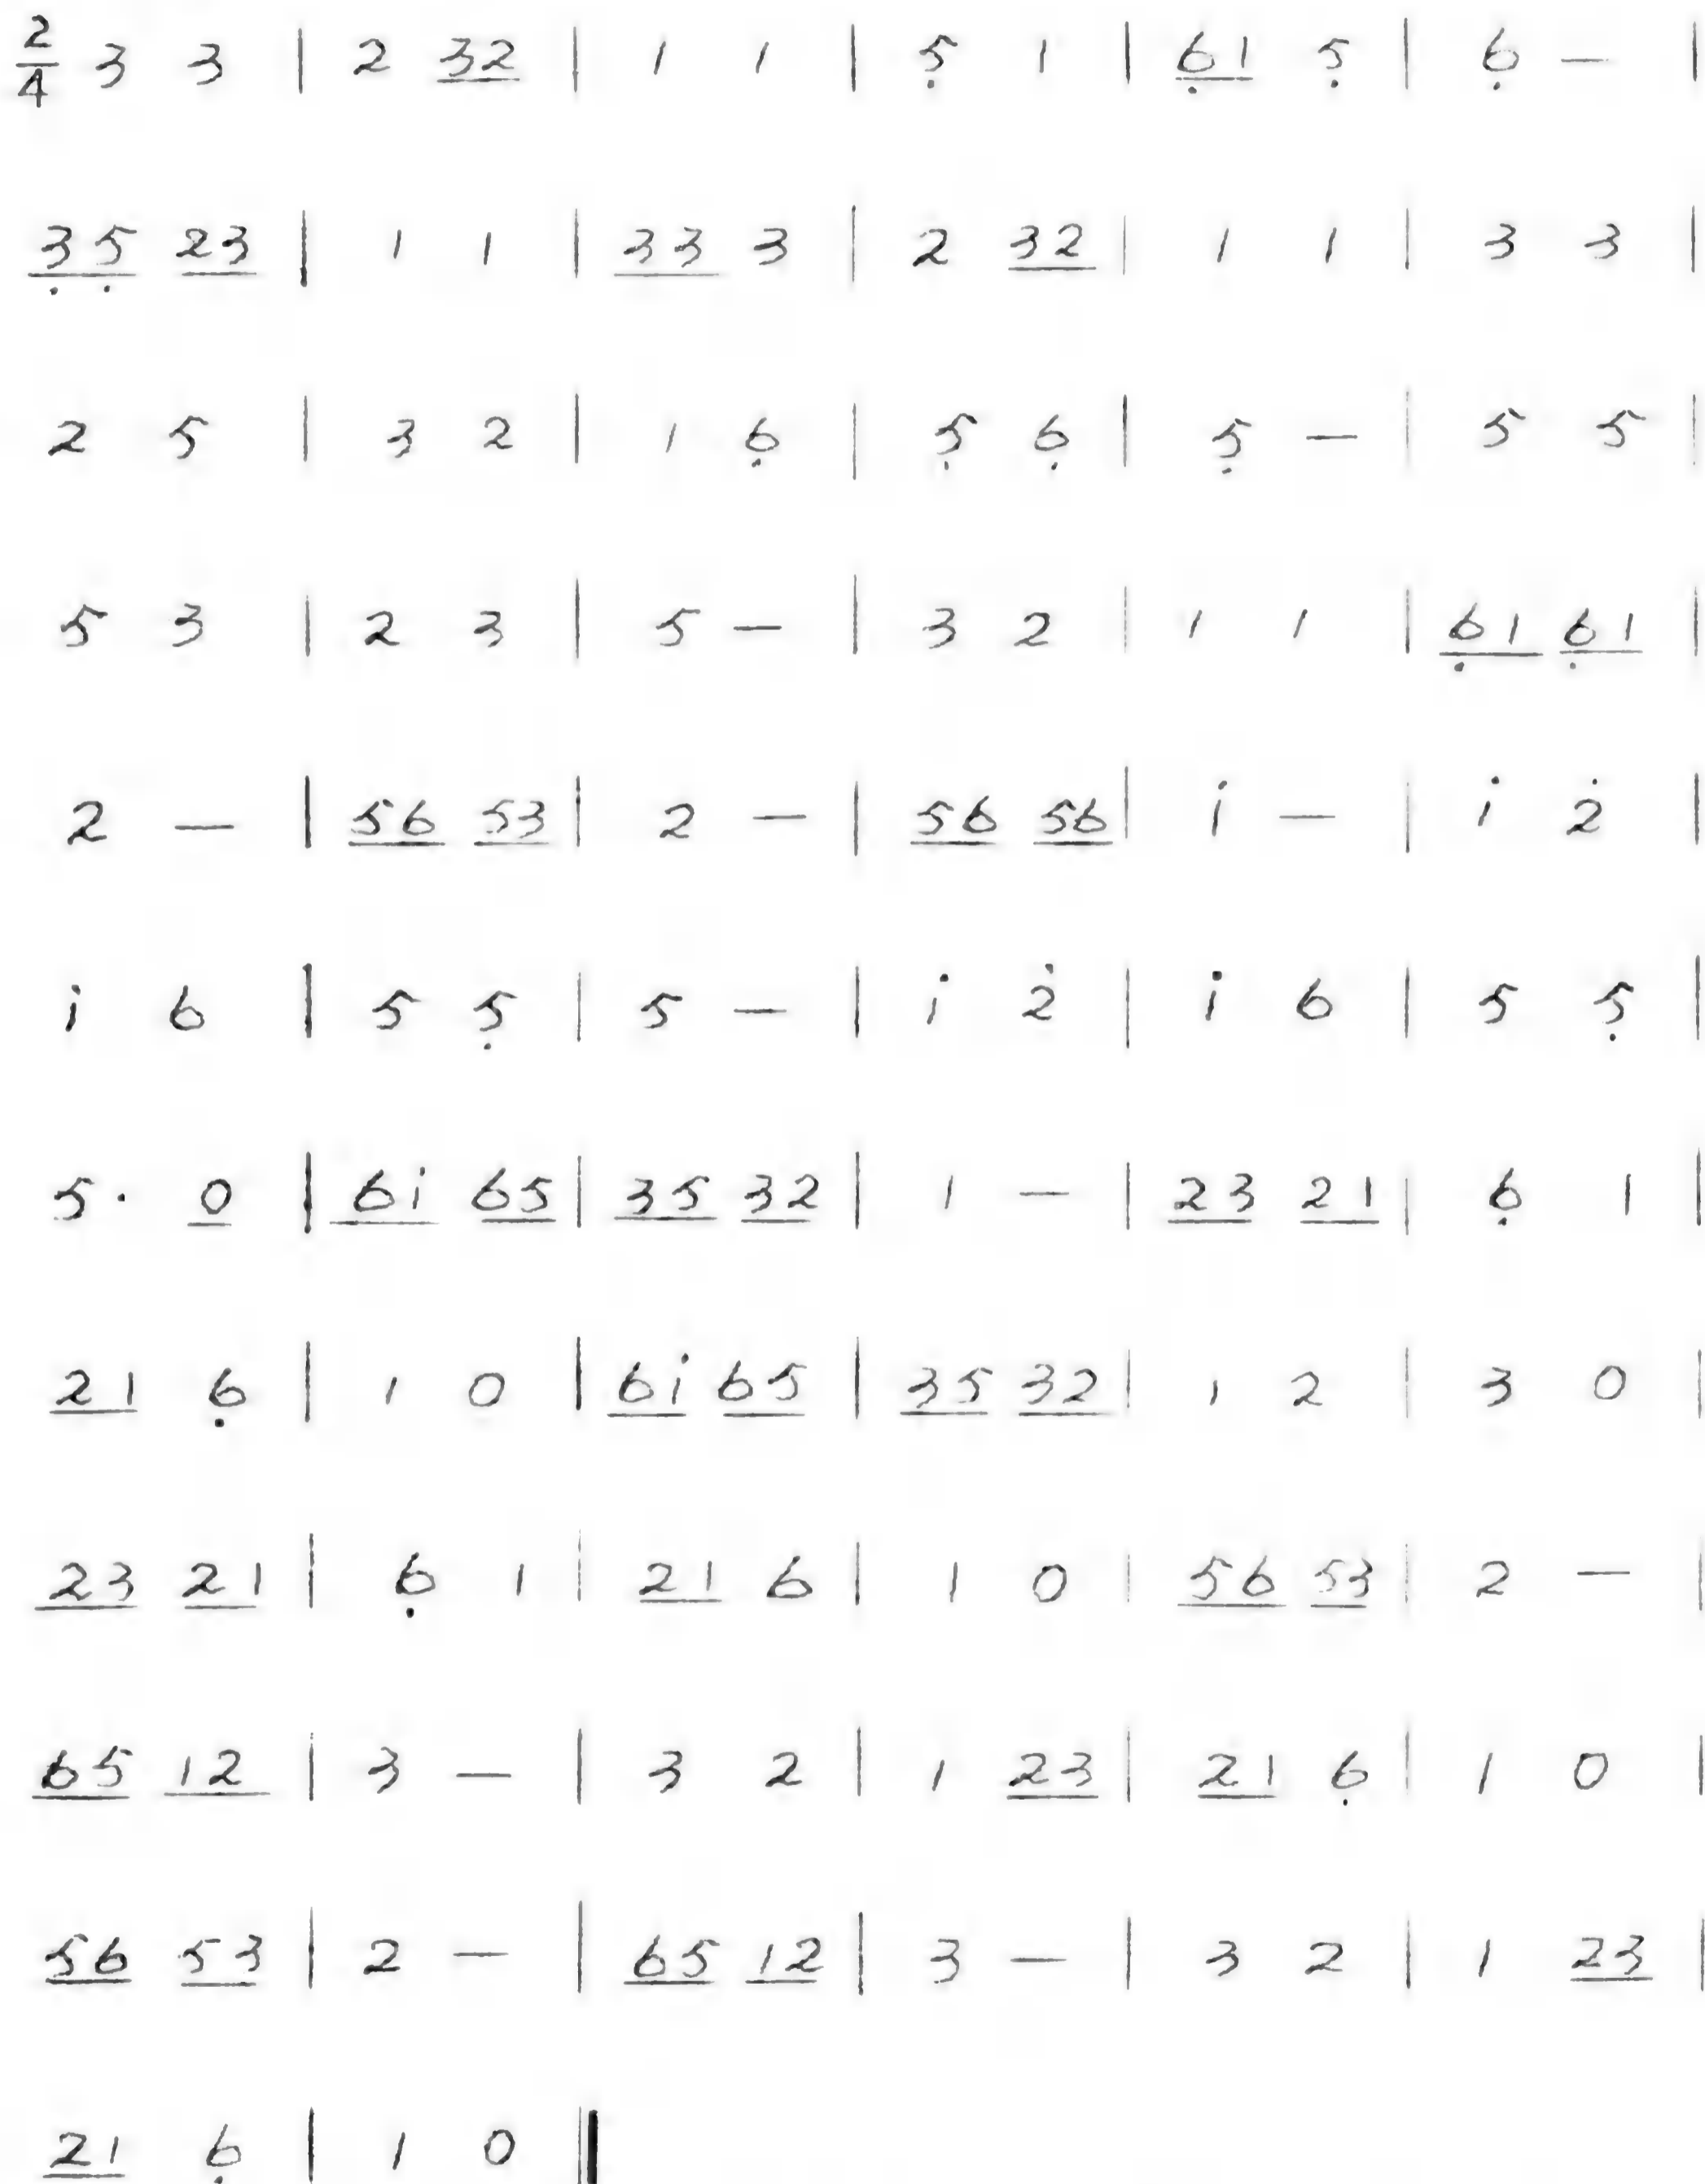 2/4 3 3 | 2 3̲2̲ | 1 1 | 5̣ 1 | 6̲̣1̲ 5̣ | 6̣ — |
3̲̣5̲̣ 2̲3̲ | 1 1 | 3̲3̲ 3 | 2 3̲2̲ | 1 1 | 3 3 |
2 5 | 3 2 | 1 6̣ | 5̣ 6̣ | 5̣ — | 5 5 |
5 3 | 2 3 | 5 — | 3 2 | 1 1 | 6̲̣1̲ 6̲̣1̲ |
2 — | 5̲6̲ 5̲3̲ | 2 — | 5̲6̲ 5̲6̲ | 1̇ — | 1̇ 2̇ |
1̇ 6 | 5 5̣ | 5 — | 1̇ 2̇ | 1̇ 6 | 5 5̣ |
5· 0̲ | 6̲1̲̇ 6̲5̲ | 3̲5̲ 3̲2̲ | 1 — | 2̲3̲ 2̲1̲ | 6̣ 1 |
2̲1̲ 6̣ | 1 0 | 6̲1̲̇ 6̲5̲ | 3̲5̲ 3̲2̲ | 1 2 | 3 0 |
2̲3̲ 2̲1̲ | 6̣ 1 | 2̲1̲ 6 | 1 0 | 5̲6̲ 5̲3̲ | 2 — |
6̲5̲ 1̲2̲ | 3 — | 3 2 | 1 2̲3̲ | 2̲1̲ 6̣ | 1 0 |
5̲6̲ 5̲3̲ | 2 — | 6̲5̲ 1̲2̲ | 3 — | 3 2 | 1 2̲3̲ |
2̲1̲ 6̣ | 1 0 ‖